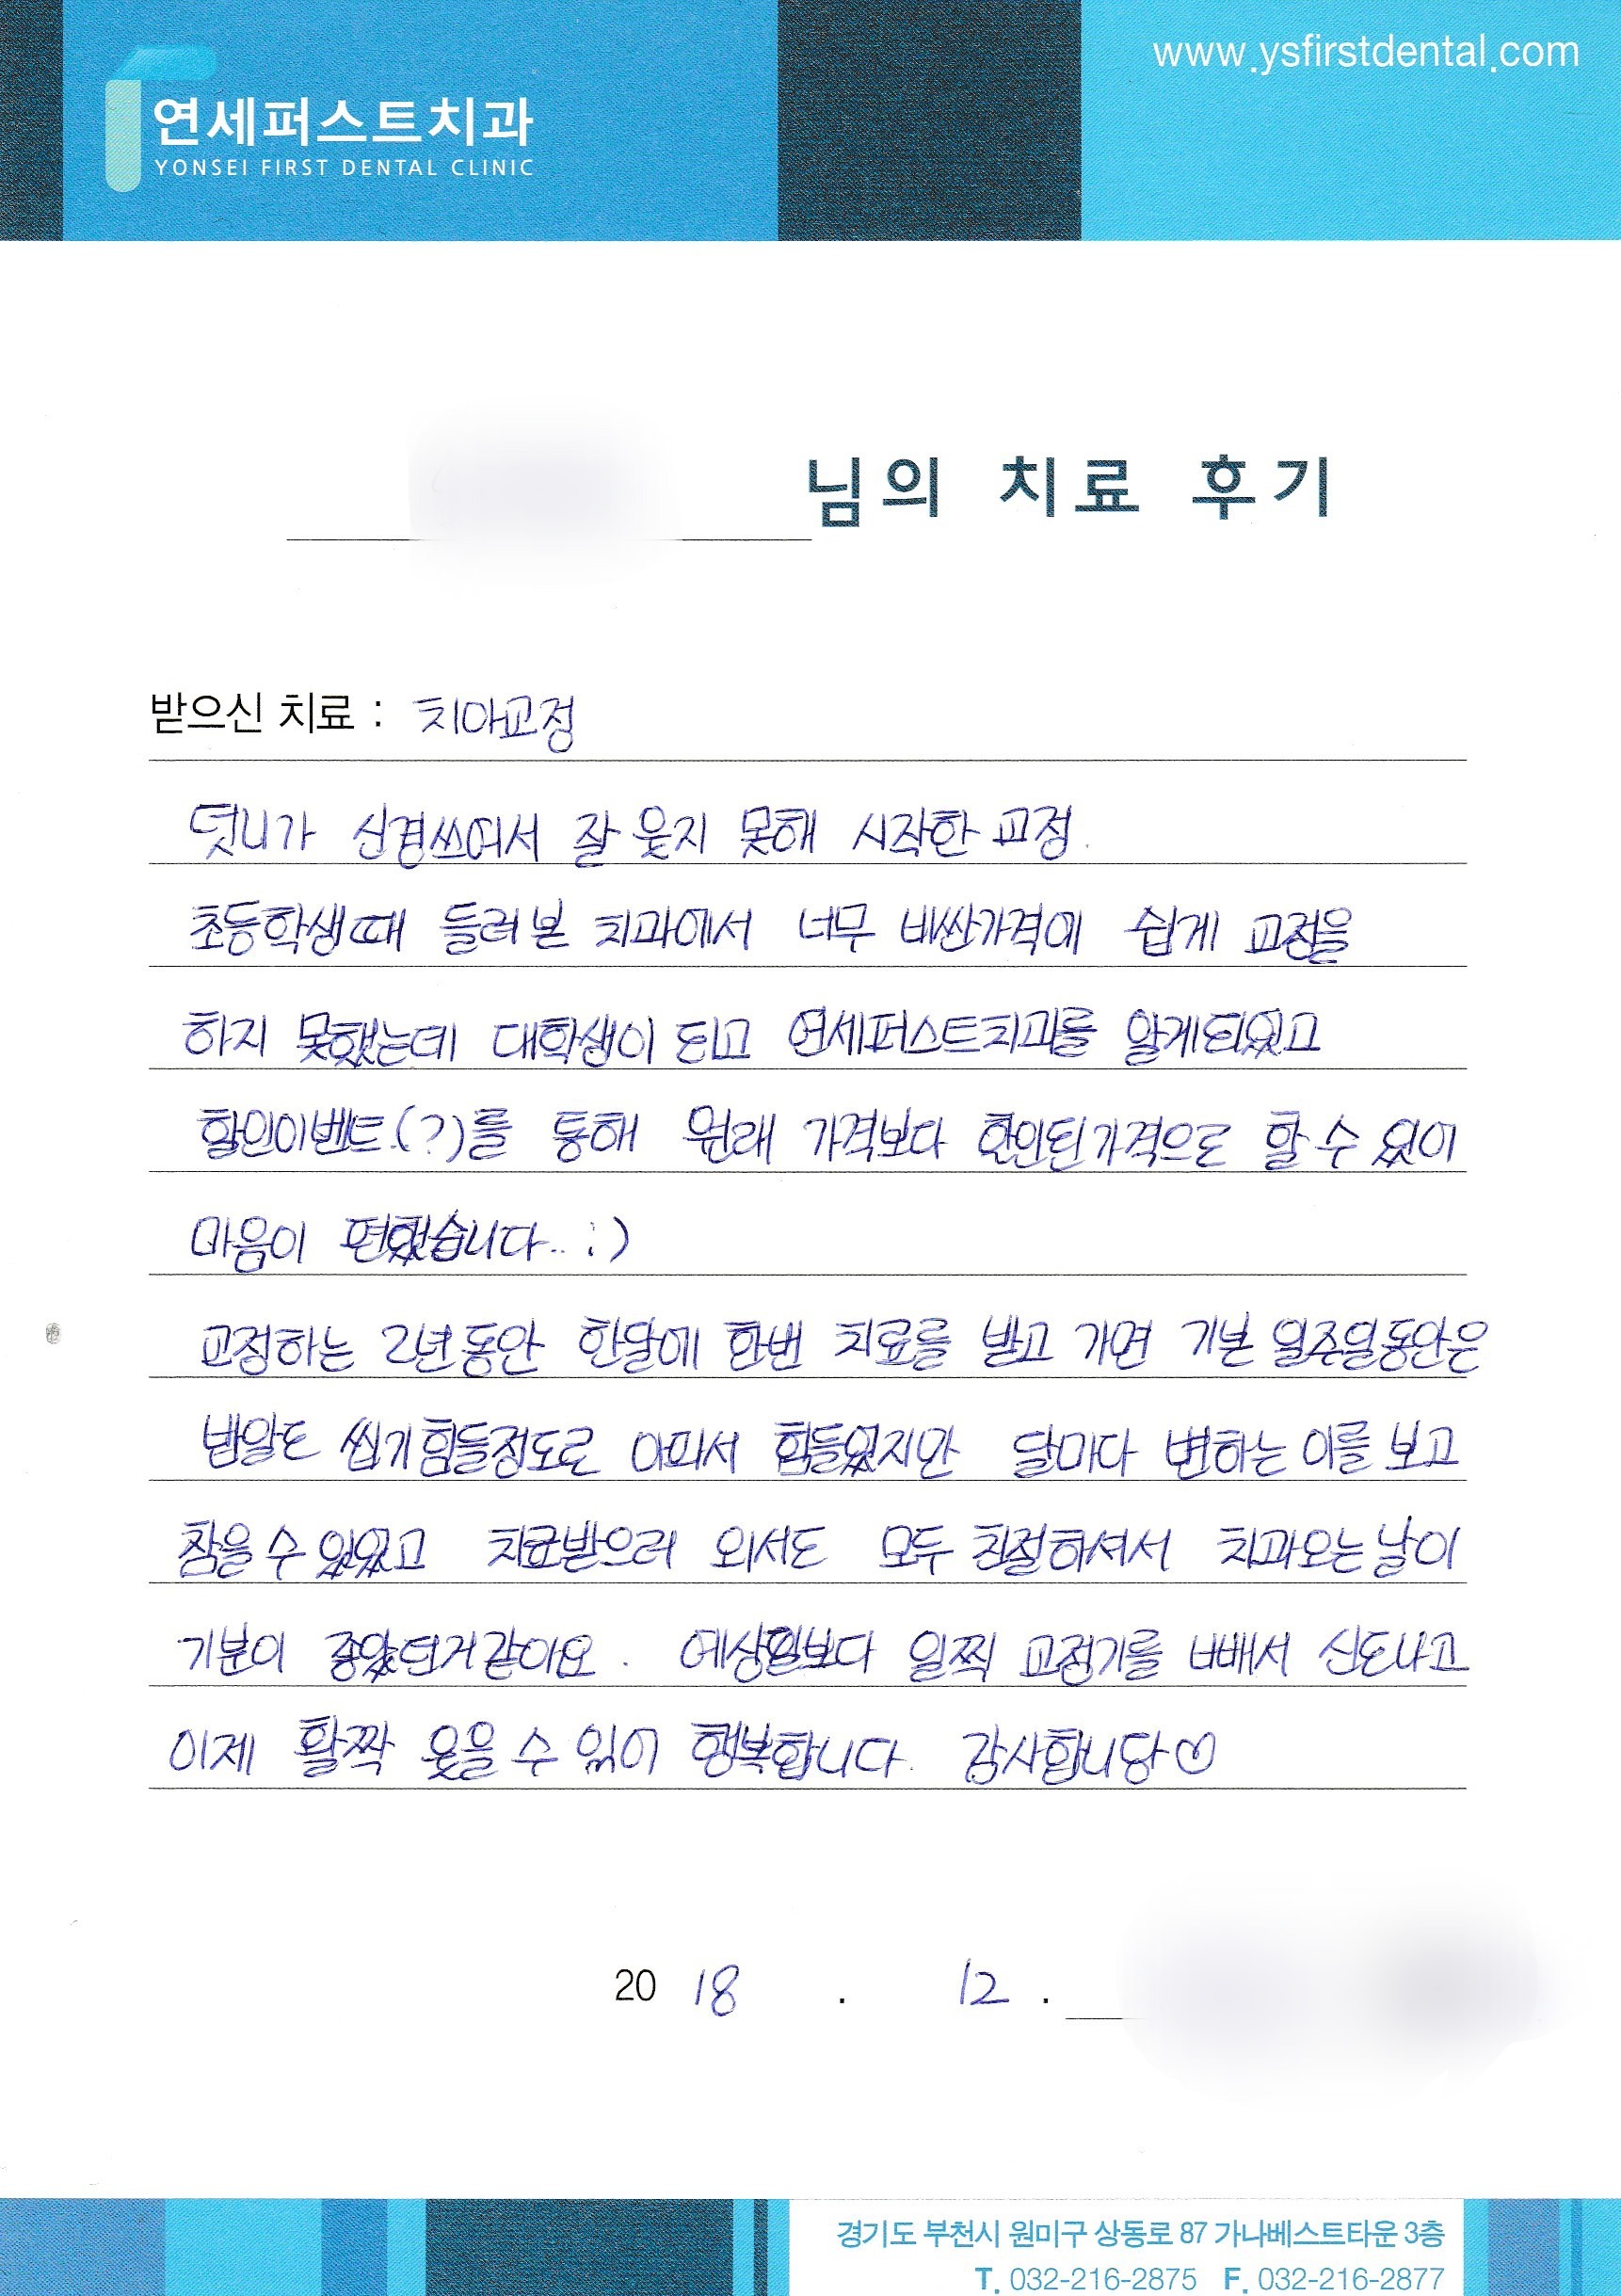 www.ysfirstdental.com
연세퍼스트치과
YONSEI FIRST DENTAL CLINIC
님의 치료 후기
받으신 치료 : 치아교정
덧니가 신경쓰여서 잘 웃지 못해 시작한 교정.
초등학생때 들러본 치과에서 너무 비싼가격에 쉽게 교정을
하지 못했는데 대학생이 되고 연세퍼스트치과를 알게되었고
할인이벤트(?)를 통해 원래 가격보다 할인된가격으로 할 수 있어
마음이 편했습니다..:)
교정하는 2년동안 한달에 한번 치료를 받고 가면 기본 일주일동안은
밥알도 씹기힘들정도로 아파서 힘들었지만 달마다 변하는 이를 보고
참을 수 있었고 치료받으러 와서도 모두 친절하셔서 치과오는날이
기분이 좋았던거같아요. 예상일보다 일찍 교정기를 빼서 신도나고
이제 활짝 웃을 수 있어 행복합니다. 감사합니당♡
2018 . 12 .
경기도 부천시 원미구 상동로 87 가나베스트타운 3층
T. 032-216-2875 F. 032-216-2877